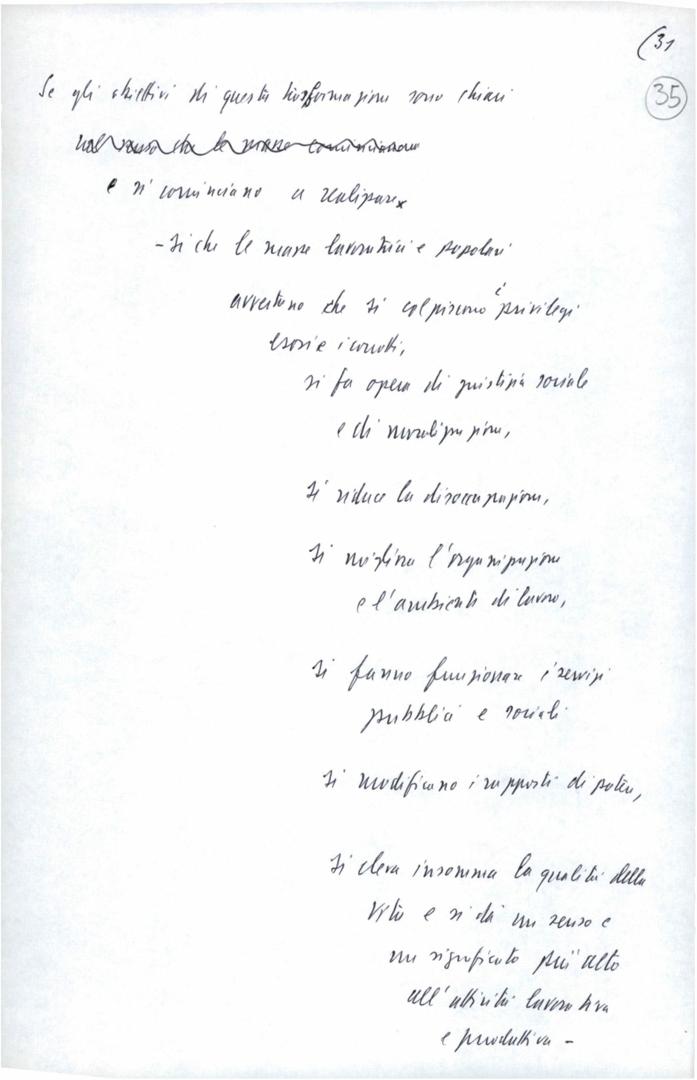 (31
35
Se gli obiettivi di questa trasformazione sono chiari
nel senso che le masse cominciano
e si cominciano a realizzare
- sì che le masse lavoratrici e popolari
avvertano che si colpiscono i privilegi
esosi e i corrotti,
si fa opera di giustizia sociale
e di moralizzazione,
si riduce la disoccupazione,
si migliora l'organizzazione
e l'ambiente di lavoro,
si fanno funzionare i servizi
pubblici e sociali
si modificano i rapporti di potere,
si eleva insomma la qualità della
vita e si dà un senso e
un significato più alto
all'attività lavorativa
e produttiva -